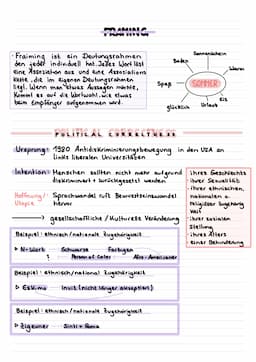 FRAMING
· Framing ist ein Deutungsrahmen
den jede/r individuell hat. Jedes Wort löst
eine Assoziation aus und eine Assoziations
kette, die im eigenen Deutungsrahmen
liegt. Wenn man etwas Aussagen möchte,
kommt es auf die Wortwahl, wie etwas
beim Empfänger aufgenommen wird.
Sonnenschein
Baden
Warm
Spaß
SOMMER
Eis
Urlaub
glücklich
POLITICAL CORRECTNESS
Ursprung: 1980 Antidiskriminierungsbewegung in den USA an
links liberalen Universitäten
Intention: Menschen sollten nicht mehr aufgrund
diskriminiert + zurückgesetzt werden
· ihres Geschlechts
· ihrer Sexualität
· ihrer ethnischen,
nationalen o.
Religiöser Zugehörig
keit
· ihrer sozialen
Stellung
· ihres Alters
· einer Behinderung
Hoffnung/
Utopie
Sprachwandel ruft Bewusstseinswandel
hervor
→ gesellschaftliche / Kulturelle Veränderung
Beispiel: ethnisch/national Zugehörigkeit
▷ N-Wort Schwarze Farbigen
Person of Color Afro-Amerikaner
Beispiel: ethnisch/nationale Zugehörigkeit
▷ Eskimo Inuit (nicht länger akzeptiert)
Beispiel: ethnisch/nationale Zugehörigkeit
▷ Zigeuner Sinti + Roma